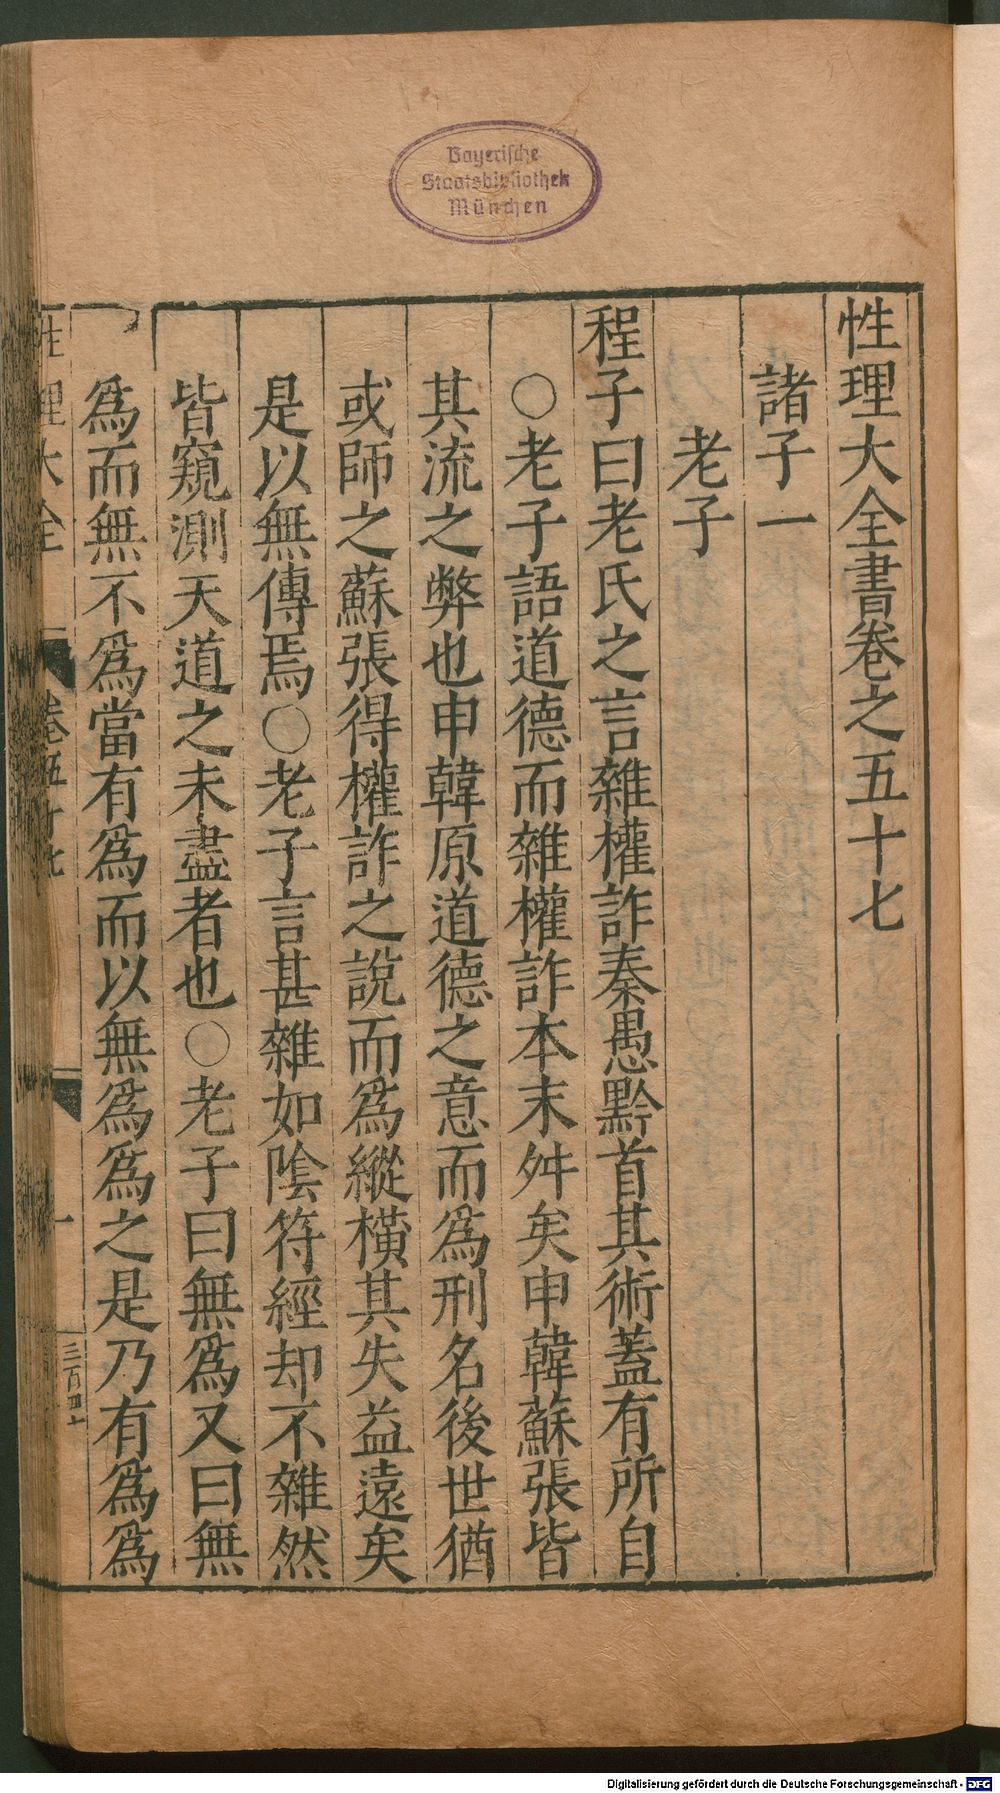 Bayerische
Staatsbibliothek
München
性理大全書卷之五十七
諸子一
老子
程子曰老氏之言雜權詐秦愚黔首其術蓋有所自
○老子語道德而雜權詐本末舛矣申韓蘇張皆
其流之弊也申韓原道德之意而爲刑名後世猶
或師之蘇張得權詐之說而爲縱橫其失益遠矣
是以無傳焉○老子言甚雜如陰符經却不雜然
皆窺測天道之未盡者也○老子曰無爲又曰無
爲而無不爲當有爲而以無爲爲之是乃有爲爲
性理大全
卷五十七
一
三百四十
Digitalisierung gefördert durch die Deutsche Forschungsgemeinschaft - DFG